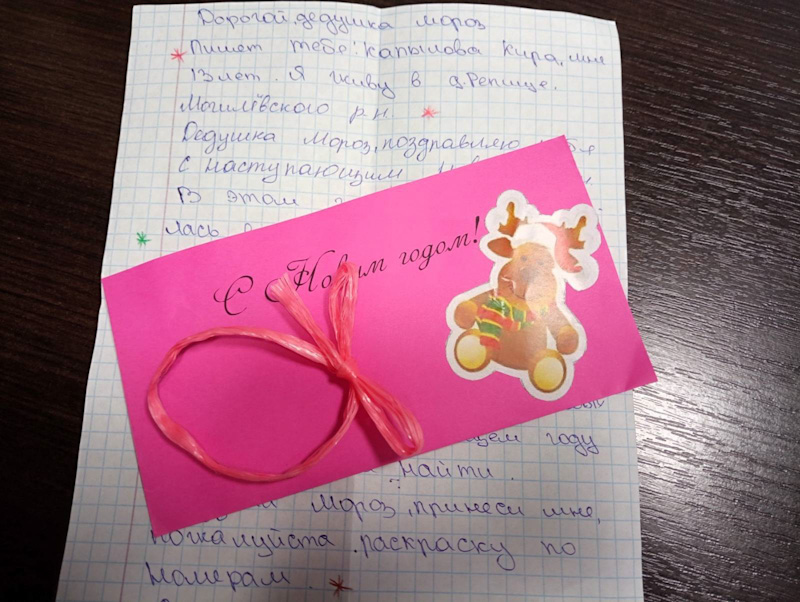 Дорогой дедушка мороз
Пишет тебе: Капылова Кира, мне
13 лет. Я живу в д.Репище.
Могилёвского р.н.
Дедушка Мороз, поздравляю
с наступающим
В этом
лась
С Новым годом!
щем году
найти.
Мороз, принеси мне,
пожалуйста раскраску по
номерам.